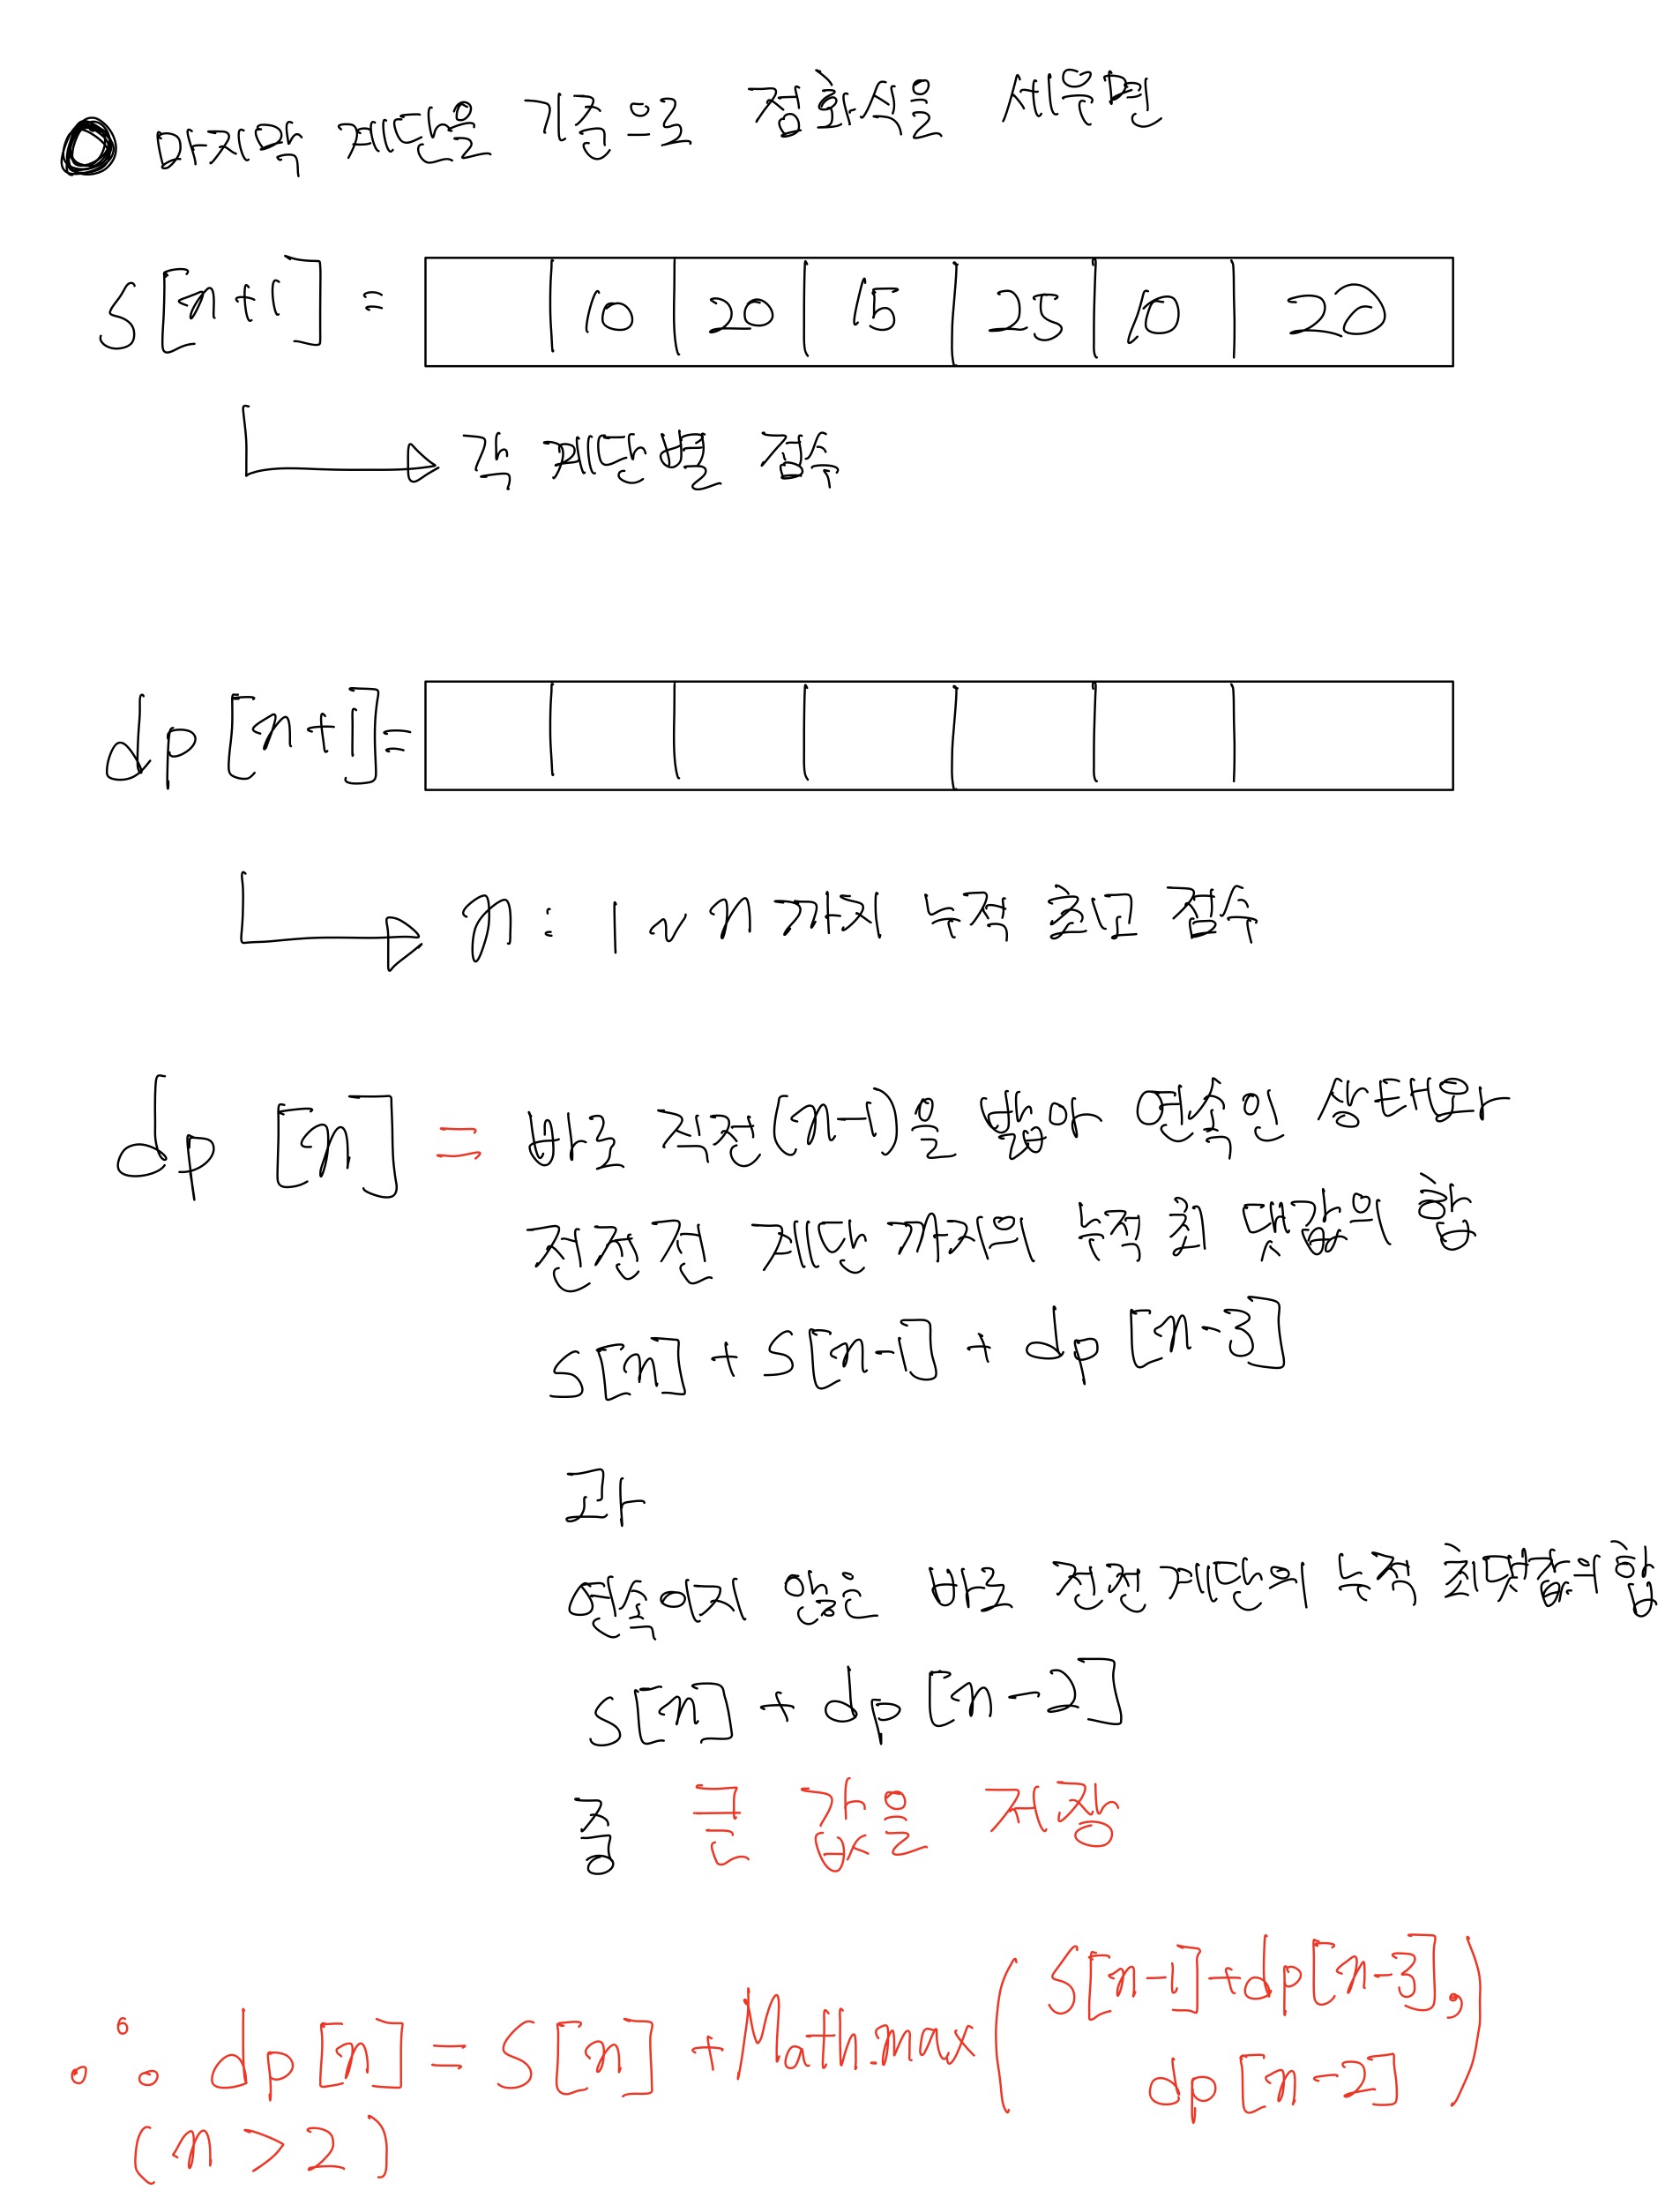 마지막 계단을 기준으로 점화식을 세우면
S[n+1] = 10 20 15 25 10 20
각 계단별 점수
dp[n+1]=
n : 1 ~ n 까지 누적 최고 점수
dp [n] = 바로 직전(n-1)을 밟아 연속인 상태와
전전전 계단 까지의 누적 최댓값의 합
S[n] + S[n-1] + dp [n-3]
과
연속이지 않은 바로 전전계단의 누적 최댓값의 합
S[n] + dp[n-2]
중 큰 값을 저장
∴ dp[n] = S[n] + Math.max( S[n-1]+dp[n-3],
dp[n-2] )
(n > 2)